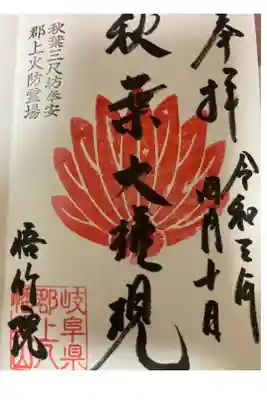 奉拝
令和三年
四月十日
秋葉大権現
秋葉三尺坊奉安
郡上火防霊場
悟竹院
岐阜県
郡上八